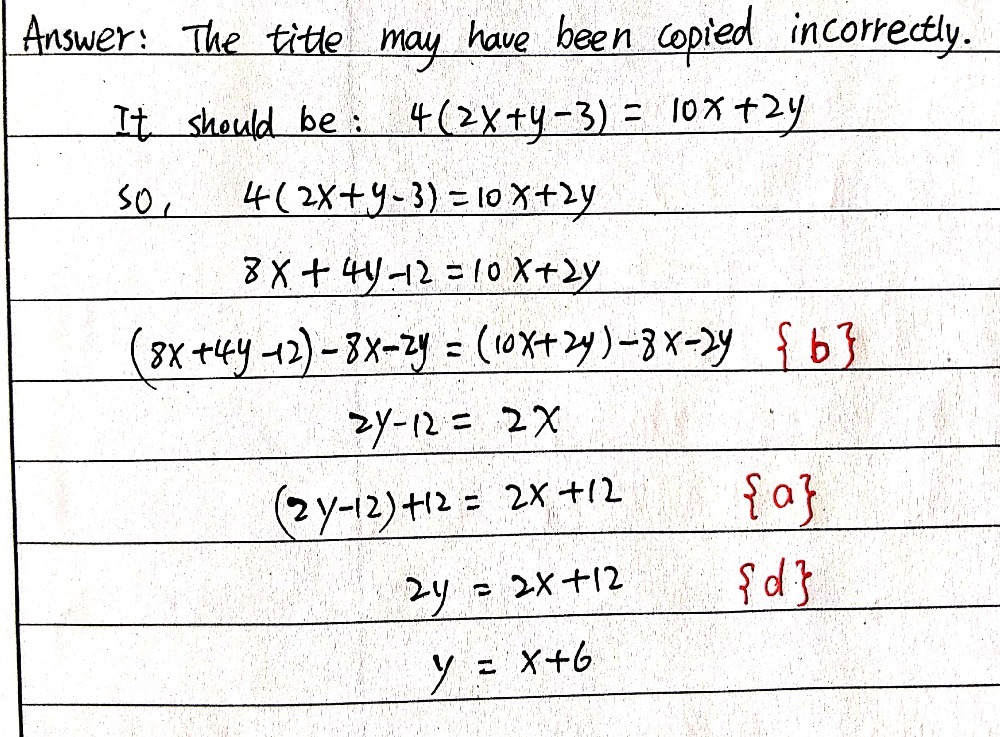 Answer: The title may have been copied incorrectly.
It should be: 4(2x+y-3) = 10x+2y
so, 4(2x+y-3)=10x+2y
8x+4y-12=10x+2y
(8x+4y-12)-8x-2y = (10x+2y)-8x-2y {b}
2y-12 = 2x
(2y-12)+12 = 2x+12 {a}
2y = 2x+12 {d}
y = x+6